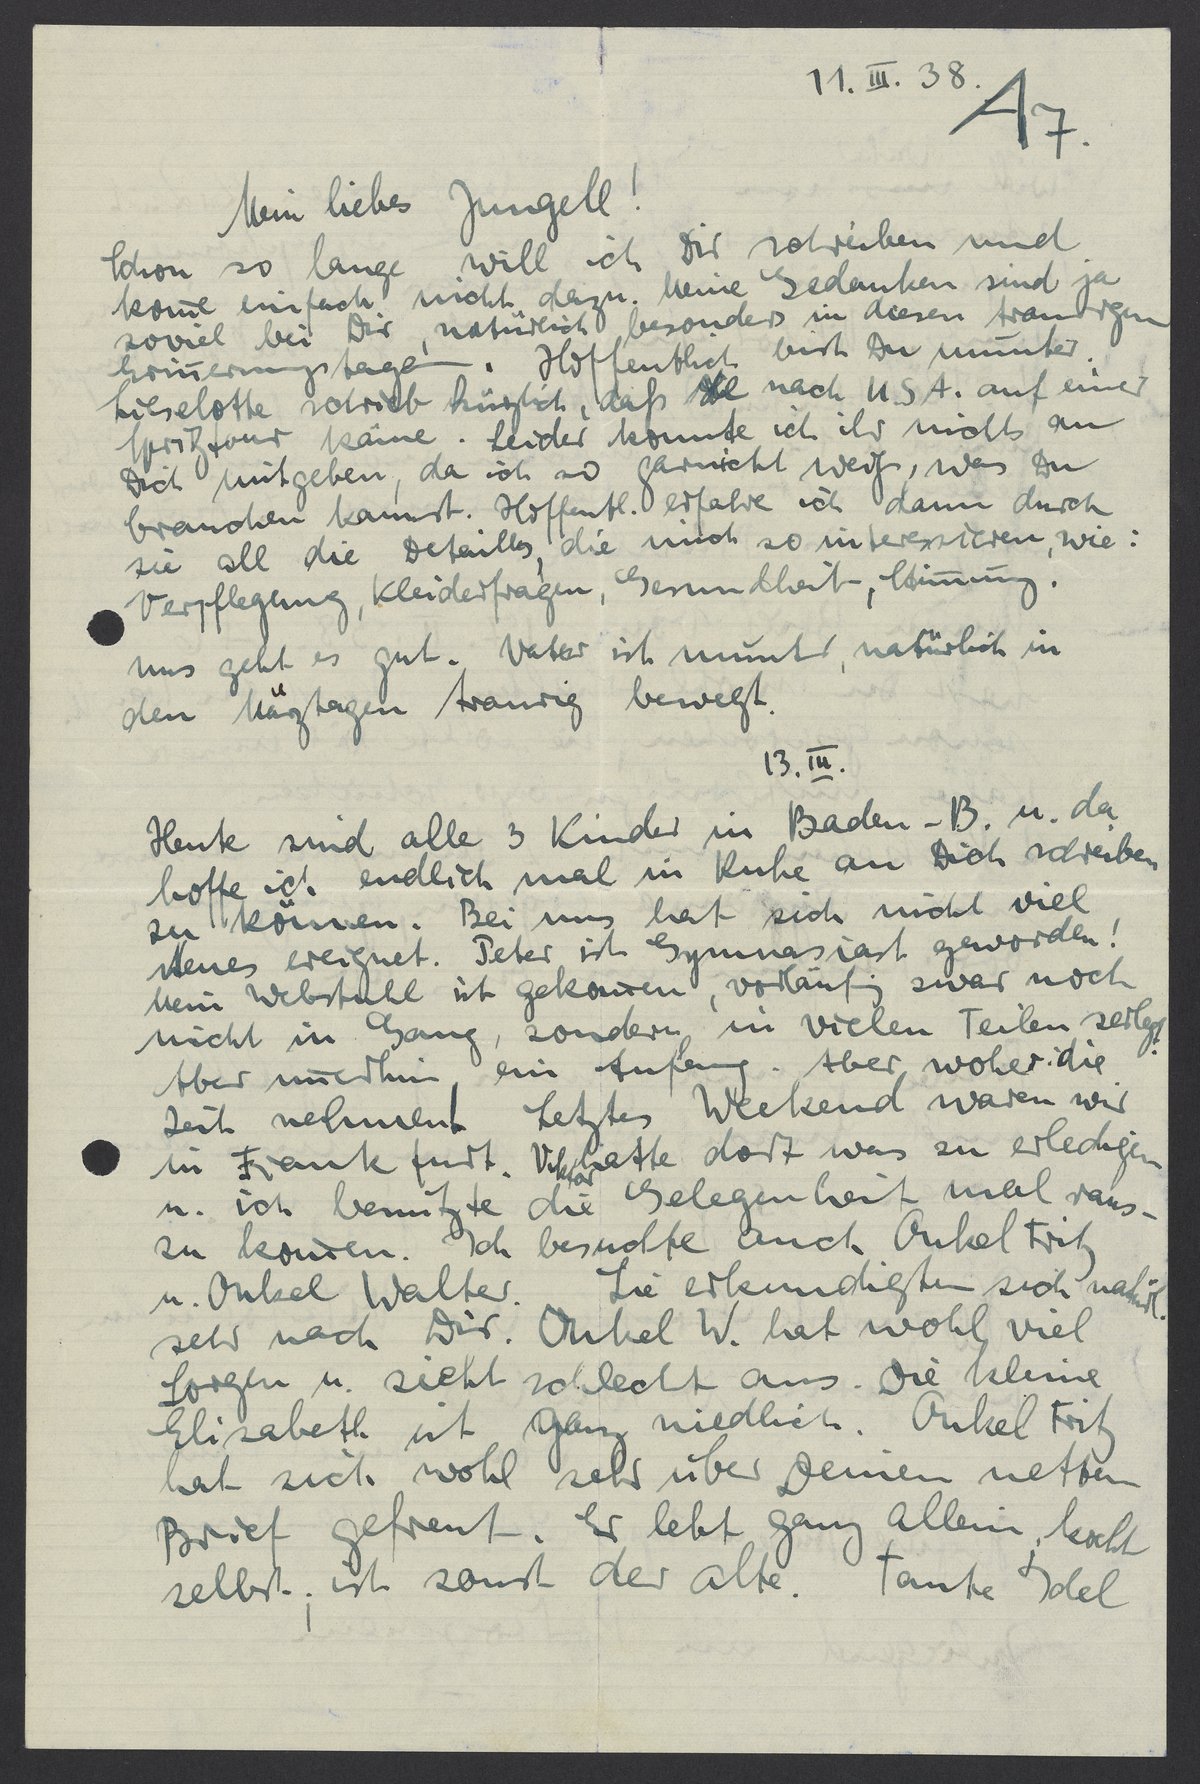 11. III. 38.
A7.
Mein liebes Jungell!
Schon so lange will ich Dir schreiben und
kom̅e einfach nicht dazu. Meine Gedanken sind ja
soviel bei Dir, natürlich besonders in diesen traurigen
Erin̅erungstagen. Hoffentlich bist Du munter.
Lieselotte schrieb kürzlich, daß sie nach U.S.A. auf einer
Spritztour käme. Leider konnte ich ihr nichts an
Dich mitgeben, da ich so garnicht weiß, was Du
brauchen kannst. Hoffentl. erfahre ich dann durch
sie all die Details, die mich so interessieren, wie:
Verpflegung, Kleiderfragen, Gesundheit, Stim̅ung.
Uns geht es gut. Vater ist munter, natürlich in
den Märztagen traurig bewegt.
13. III.
Heute sind alle 3 Kinder in Baden-B. u. da
hoffe ich endlich mal in Ruhe an Dich schreiben
zu können. Bei uns hat sich nicht viel
Neues ereignet. Peter ist Gymnasiast geworden!
Mein Webstuhl ist gekom̅en, vorläufig zwar noch
nicht in Gang, sondern in vielen Teilen zerlegt.
Aber im̅erhin ein Anfang. Aber woher die
Zeit nehmen! Letztes Weekend waren wir
in Frankfurt. Viktor hatte dort was zu erledigen
u. ich benützte die Gelegenheit mal raus-
zu kom̅en. Ich besuchte auch Onkel Fritz
u. Onkel Walter. Sie erkundigten sich natürl.
sehr nach Dir. Onkel W. hat wohl viel
Sorgen u. sieht schlecht aus. Die kleine
Elisabeth ist ganz niedlich. Onkel Fritz
hat sich wohl sehr über Deinen netten
Brief gefreut. Er lebt ganz allein, kocht
selbst; ist sonst der alte. Tante Idel